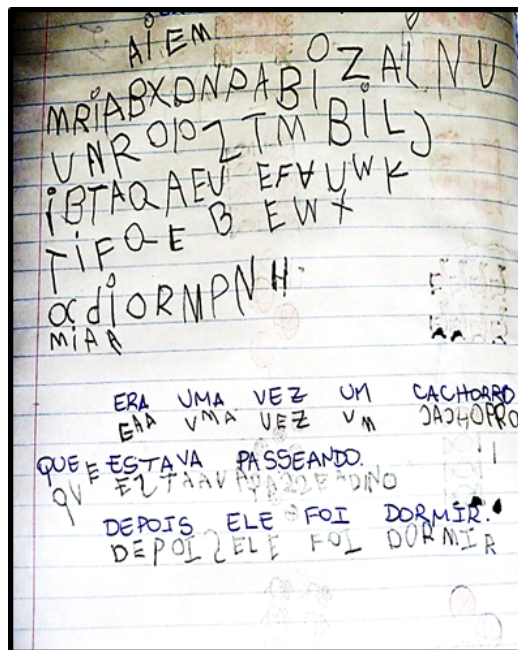 AÍEM
MRIABXDNPABIZAINU
UNROIOZTMBILJ
IBTAQAEU EFAUWK
TIFQE B EWX
adiORMPNH
MIAR
ERA UMA VEZ UM CACHORRO
EAA VMA VEZ VM JAJHOPRO
QUE ESTAVA PASSEANDO.
QVE EZTAAV
DEPOIS ELE FOI DORMIR.
DEPOIZELE FOI DORMIR